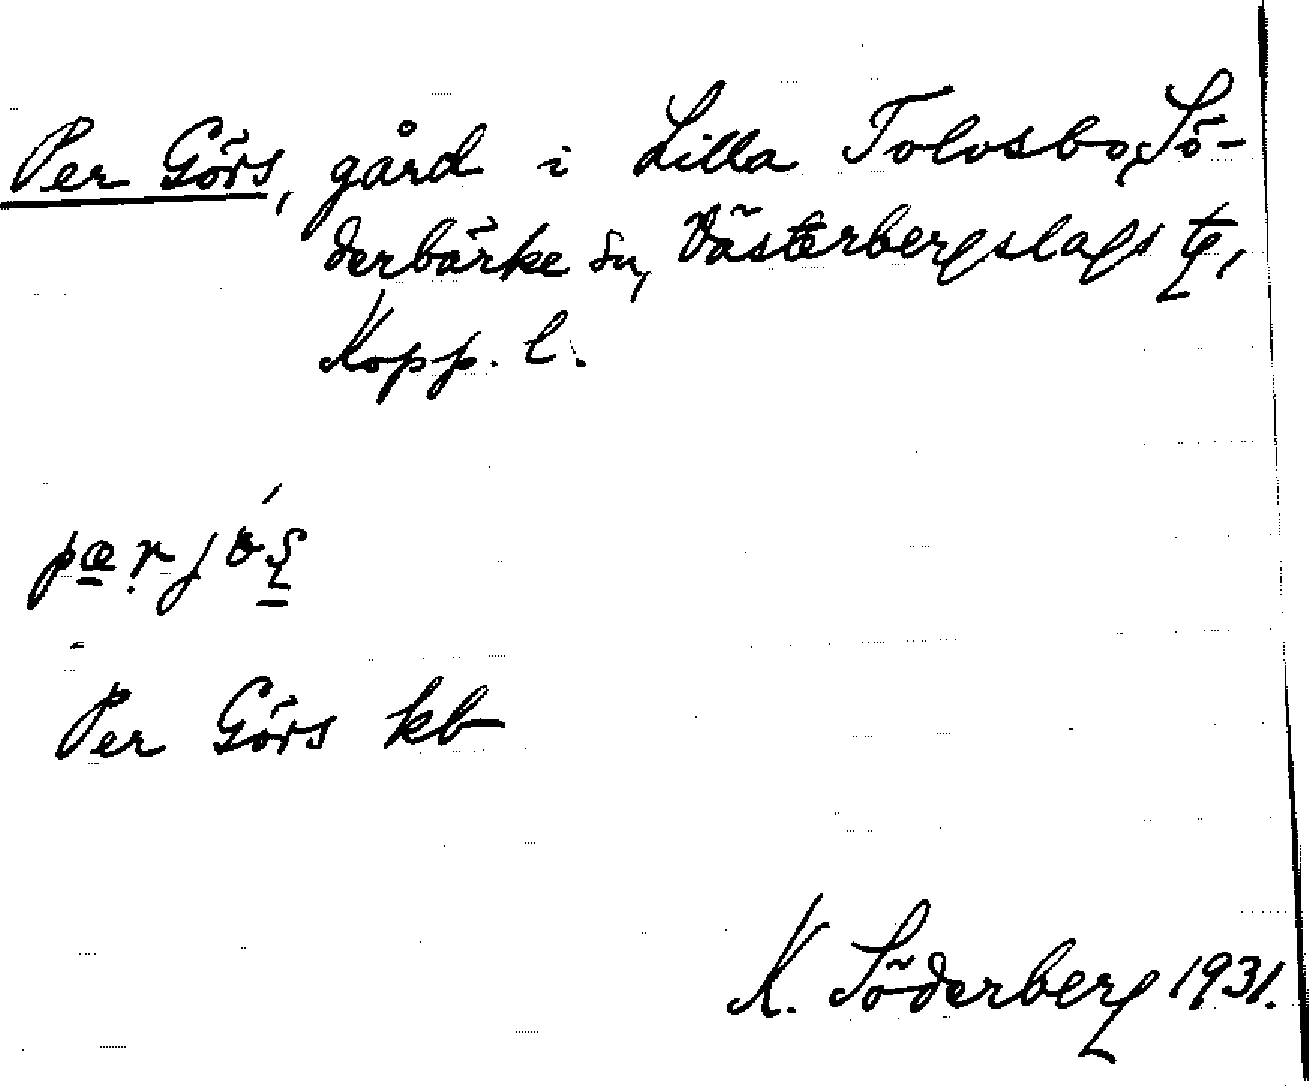 Per Görs, gård i Lilla Tolvsbo, Sö-
derbärke sn, Västerbergslags tg,
Kopp. l.
Per Görs kb
K. Söderberg 1931.